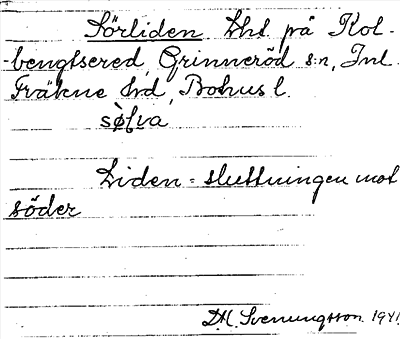 Sörliden Lht. på Kol-
bengtsered, Grinneröd s:n, Inl.
Fräkne hd, Bohusl.
Liden = sluttningen mot
söder
D.H. Svenungsson 1941